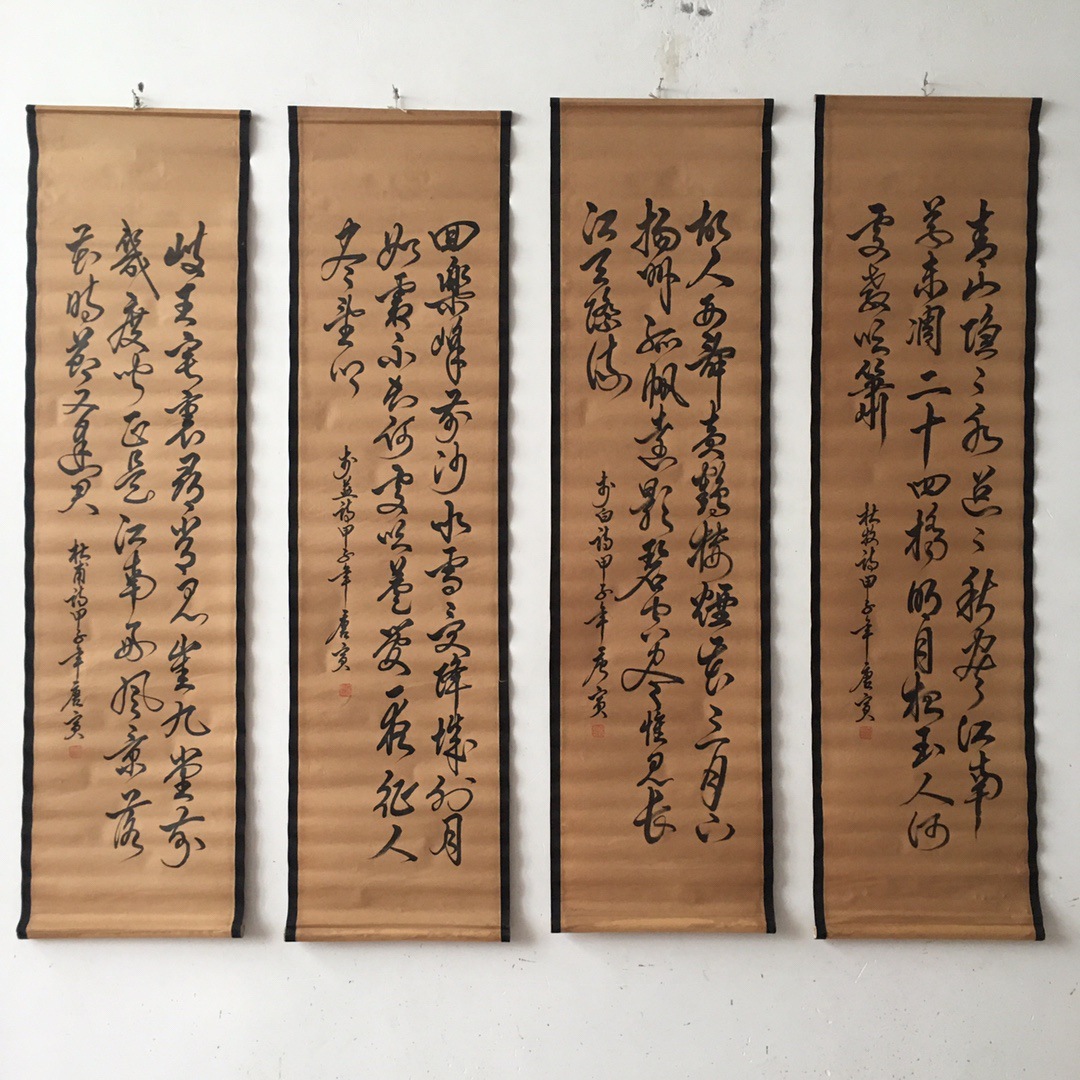 青山隱〻水迢〻秋盡江南
草未凋二十四橋明月夜玉人何
處教吹簫
杜牧詩甲子年唐寅
故人西辭黃鶴樓煙花三月下
揚州孤帆遠影碧空盡惟見長
江天際流
李白詩甲子年唐寅
回樂峰前沙似雪受降城外月
如霜不知何處吹蘆管一夜征人
盡望鄉
李益詩甲子年唐寅
岐王宅裏尋常見崔九堂前
幾度聞正是江南好風景落
花時節又逢君
杜甫詩甲子年唐寅